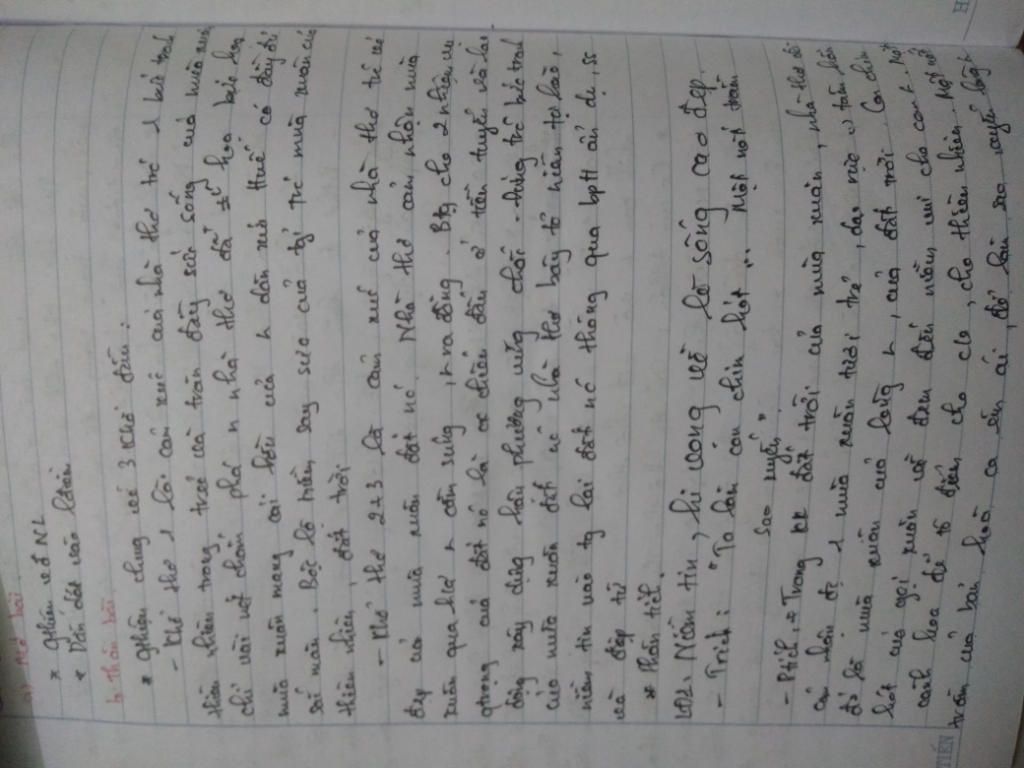 a) Mở bài
* Ghtiệu vđ NL
* Dẫn dắt vào
b, thân bài
* Ghtiệu chung về 3 khổ đầu:
- Khổ thơ 1 là cảm xúc của nhà thơ trc 1 bức tranh
thiên nhiên trong trẻo và tràn đầy sức sống của mùa xuân
chỉ vài nét chấm phá n nhà thơ đã hoạ bức
mùa xuân mang cái hồn của xứ Huế có đầy đủ
sắc màn. Bộc lộ niềm say sưa của tg trc mùa xuân của
thiên nhiên, đất trời
- Khổ thơ 2+3 là cảm xúc của nhà thơ trc vẻ
đẹp của mùa xuân đất nc. Nhà thơ cảm nhận mùa
xuân qua h/a cầm súng, ra đồng. cho 2 nhiệm vụ
qtrọng của đất nc là chiến đấu ở tiền tuyến và lao
động xây dựng hậu phương vững chắc. Đứng trc bức tranh
của mùa xuân đất nc nhà thơ bày tỏ niềm tự hào,
niềm tin vào tg lai đất nc thông qua bptt ẩn dụ, ss
và điệp từ
* Phân tích.
LĐ2: Niềm tin, hi vọng về lẽ sống cao đẹp
- Trích: "Ta làm con chim hót ... Một nốt trầm
xao xuyến"
- Ptích: Trong đất trời của mùa xuân, nhà thơ đã
cảm nhận đc 1 mùa xuân tươi trẻ, dạt dào tâm hồn
đó là mùa xuân của lòng, của đất trời. Con chim
hót để gọi xuân về đem đến niềm vui cho con. Một
cành hoa để tô điểm cho cho thiên nhiên. Một nốt
trầm của bản hoà ca êm ái, để làm xao xuyến lòng
TIẾN
H